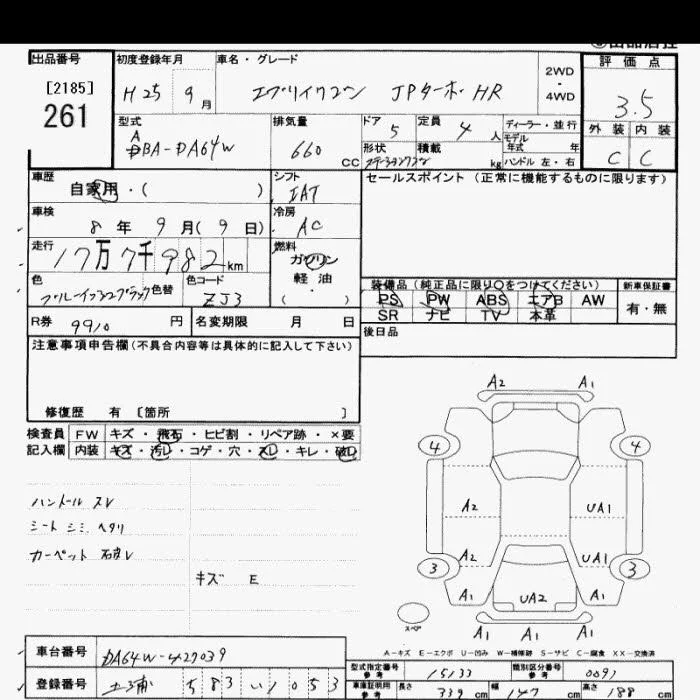 出品番号 初度登録年月 車名・グレード 2WD ・ 4WD 評価点
[2185] H25 9月 エブリイワゴン JPターボ HR 3.5
261
型式 排気量 ドア 定員 ディーラー・並行 外装 内装
ABA-DA64W 660 CC 5 4人 モデル年式 年 C C
形状 積載 kg ハンドル 左・右
車歴 シフト セールスポイント (正常に機能するものに限ります)
自家用・( ) IAT
車検 冷房
8年 9月(9日) AC
走行 燃料
17万7千982km ガソリン
軽油
( )
色 色替 色コード 装備品 (純正品に限り○をつけてください) 新車保証書
ZJ3 PS PW ABS エアB AW 有・無
SR ナビ TV 本革
R券 9910円 名変期限 月 日 後日品
注意事項申告欄 (不具合内容等は具体的に記入して下さい)
修復歴 有 〔箇所 〕
検査員 FW キズ・飛石・ヒビ割・リペア跡・×要
記入欄 内装 キズ・汚レ・コゲ・穴・スレ・キレ・破レ
ハンドル スレ
シート シミ ヘタリ
カーペット 破レ
キズ E
A2 A1
4 4
A2 UA1
A2 UA1
3 3
A1 UA2 A1
スペア
A1 A1 A1
A-キズ E-エクボ U-凹み W-補修跡 S-サビ C-腐食 XX-交換済
車台番号 DA64W-427039
型式指定番号 参考 15133 類別区分番号 参考 0091
登録番号 土浦 583 い 1053
車庫証明用 参考 長さ 339cm 幅 147cm 高さ 188cm